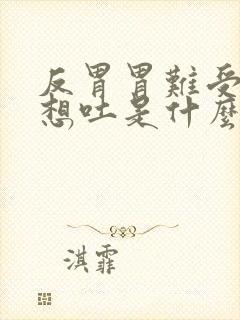 反胃胃難受
想吐是什麼
淇霏